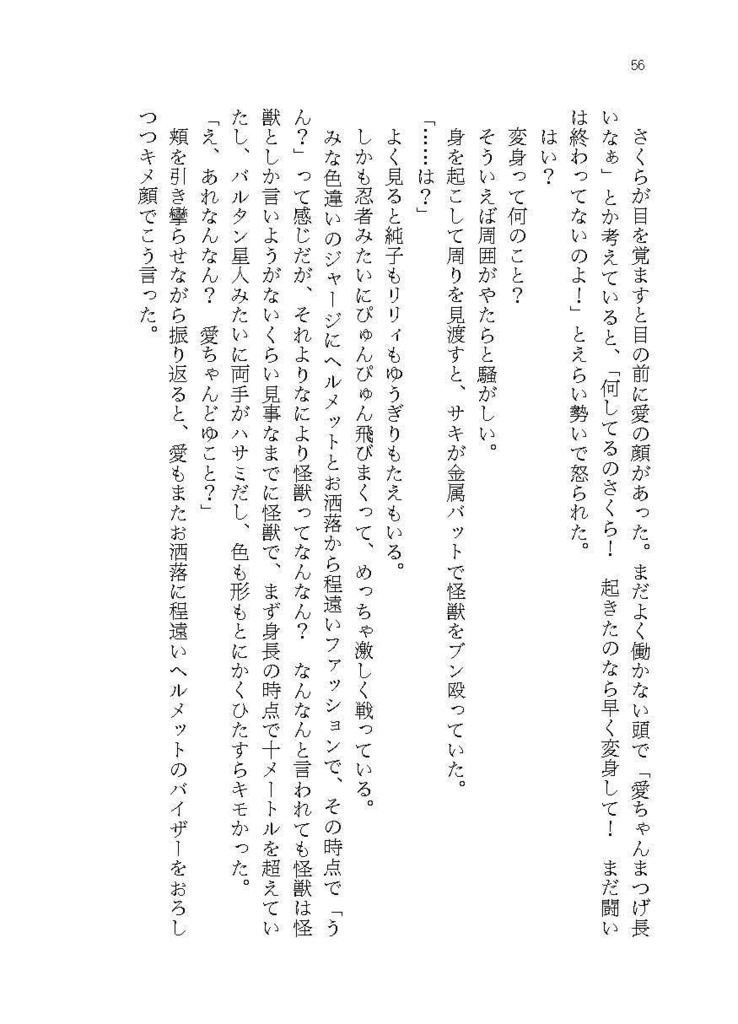 56
さくらが目を覚ますと目の前に愛の顔があった。まだよく働かない頭で「愛ちゃんまつげ長
いなぁ」とか考えていると、「何してるのさくら！　起きたのなら早く変身して！　まだ闘い
は終わってないのよ！」とえらい勢いで怒られた。
はい？
変身って何のこと？
そういえば周囲がやたらと騒がしい。
身を起こして周りを見渡すと、サキが金属バットで怪獣をブン殴っていた。
「……は？」
よく見ると純子もリリィもゆうぎりもたえもいる。
しかも忍者みたいにぴゅんぴゅん飛びまくって、めっちゃ激しく戦っている。
みな色違いのジャージにヘルメットとお洒落から程遠いファッションで、その時点で「う
ん？」って感じだが、それよりなにより怪獣ってなんなん？　なんなんと言われても怪獣は怪
獣としか言いようがないくらい見事なまでに怪獣で、まず身長の時点で十メートルを超えてい
たし、バルタン星人みたいに両手がハサミだし、色も形もとにかくひたすらキモかった。
「え、あれなんなん？　愛ちゃんどゆこと？」
頬を引き攣らせながら振り返ると、愛もまたお洒落に程遠いヘルメットのバイザーをおろし
つつキメ顔でこう言った。